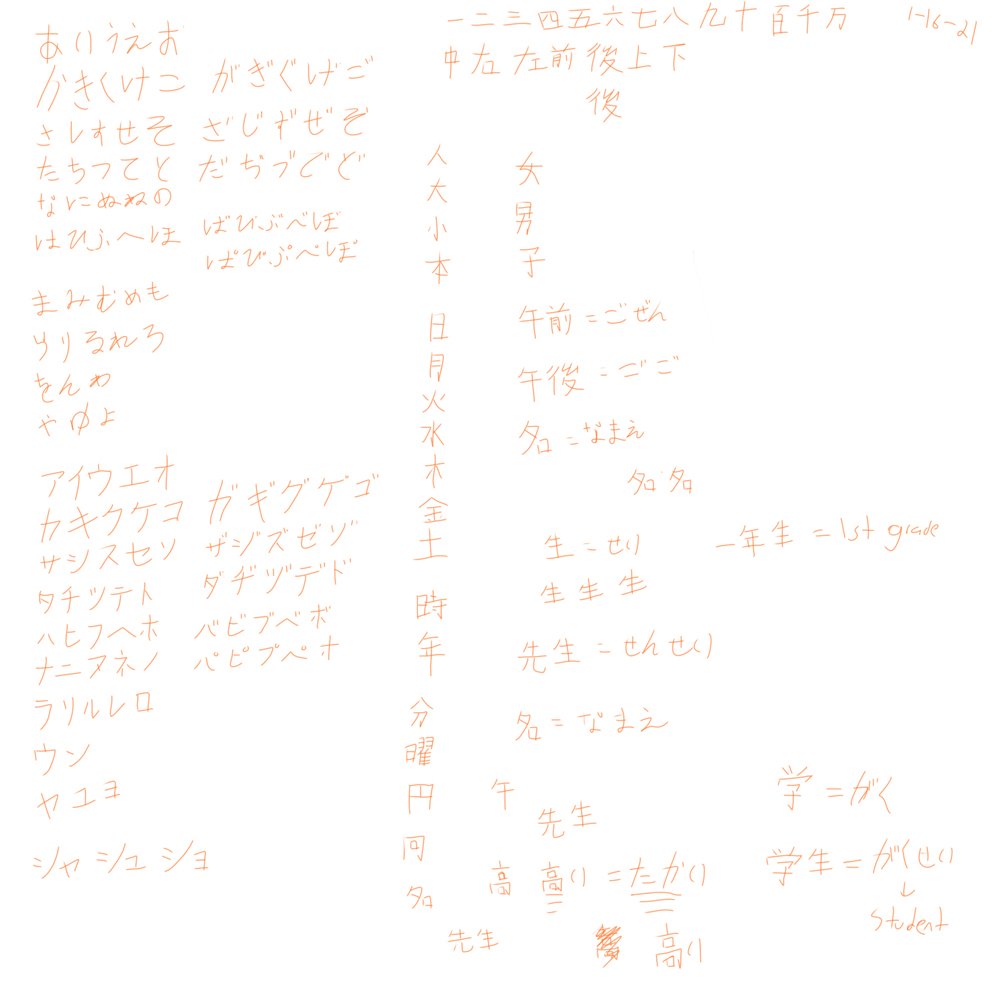 あいうえお
かきくけこ がぎぐげご
さしすせそ ざじずぜぞ
たちつてと だぢづでど
なにぬねの
はひふへほ ばびぶべぼ
ぱぴぷぺぽ
まみむめも
らりるれろ
をんわ
やゆよ
アイウエオ
カキクケコ ガギグゲゴ
サシスセソ ザジズゼゾ
タチツテト ダヂヅデド
ハヒフヘホ バビブベボ
ナニヌネノ パピプペポ
ラリルレロ
ウン
ヤユヨ
シャ シュ ショ
一二三四五六七八九十百千万 1-16-21
中右左前後上下
後
人
大
小
本
日
月
火
水
木
金
土
時
年
分
曜
円
何
名
先生
女
男
子
午前=ごぜん
午後=ごご
名=なまえ
名 名
生=せい
生 生 生
一年生=1st grade
先生=せんせい
名=なまえ
午
先生
高 高い=たかい
高い
学=がく
学生=がくせい
↓
student